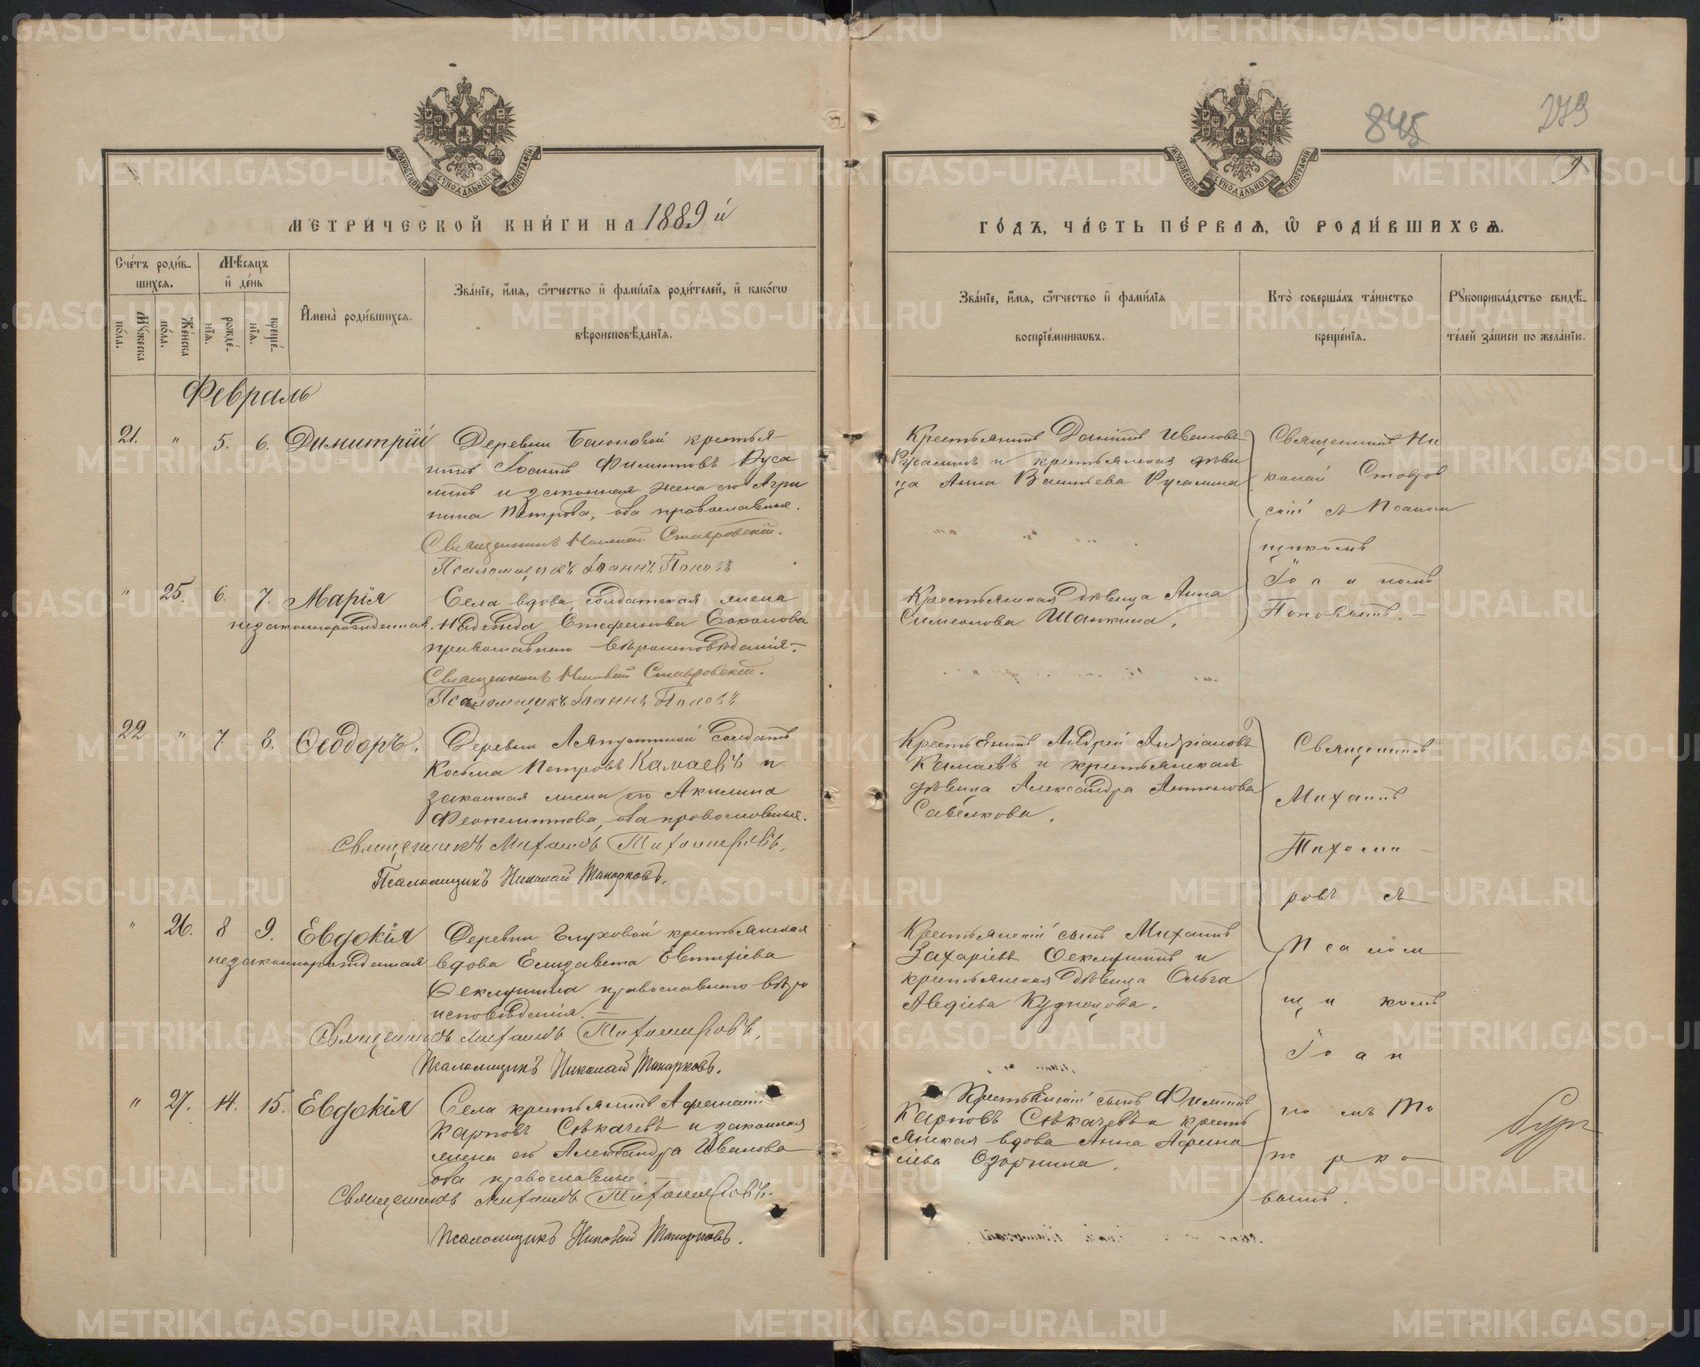 845
279
9
МЕТРИЧЕСКОЙ КНИГИ НА 1889 й
ГОДЪ, ЧАСТЬ ПЕРВАЯ, Ѡ РОДИВШИХСЯ.
Счетъ родив-
шихся.
Мужеска пола.
Женска пола.
Мѣсяцъ
и день
рожде-
нія.
креще-
нія.
Имена родившихся.
Званіе, имя, ѻтчество и фамилія родителей, и какогѡ
вѣроисповѣданія.
Званіе, имя, ѻтчество и фамилія
воспріемникѡвъ.
Кто совершалъ таинство
крещенія.
Рукоприкладство свидѣ-
телей записи по желанію.
Февраль
21. " 5. 6. Димитрій
Деревни крестья
нинъ Іоаннъ Филипповъ Руса
линъ и законная жена его Агри
пина Петрова, оба православные.
Священникъ Николай Ставровскій.
Псаломщикъ Іоаннъ Поповъ
Крестьянинъ Даніилъ Ивановъ
Русалинъ и крестьянская дѣви
ца Анна Русалина
Священникъ Ни
колай Ставров
скій съ Псалом
щикомъ
Іоанномъ
Поповымъ.
" 25. 6. 7. Марія
незаконнорожденная.
Села вдова, солдатская жена
Надежда Стефанова Соколова
православнаго вѣроисповѣданія.
Священникъ Николай Ставровскій.
Псаломщикъ Іоаннъ Поповъ
Крестьянская дѣвица Анна
Симеонова Шанкина.
22 " 7 8. Ѳеодоръ.
Деревни солдатъ
Косьма Петровъ Камаевъ и
законная жена его Акилина
оба православные.
Священникъ Михаилъ Тихомировъ.
Псаломщикъ Николай Топорковъ.
Крестьянинъ Андрей Андріановъ
Камаевъ и крестьянская
дѣвица Александра Антонова
Савелкова.
Священникъ
Михаилъ
Тихоми-
ровъ съ
Псалом
щикомъ
Іоан
номъ То
порко
вымъ.
" 26. 8 9. Евдокія
незаконнорожденная
Деревни Глуховой крестьянская
вдова Елизавета Евтихіева
Ѳеклушина православнаго вѣро
исповѣданія.
Священникъ Михаилъ Тихомировъ.
Псаломщикъ Николай Топорковъ.
Крестьянскій сынъ Михаилъ
Захаріевъ Ѳеклушинъ и
крестьянская дѣвица Ольга
Авдіева Кузнецова.
" 27. 14. 15. Евдокія
Села крестьянинъ Аѳанасій
Карповъ Сѣкачевъ и законная
жена его Александра Иванова
оба православные.
Священникъ Михаилъ Тихомировъ.
Псаломщикъ Николай Топорковъ.
Крестьянскій сынъ Филиппъ
Карповъ Сѣкачевъ и кресть
янская вдова Анна Аѳана
сіева Озорнина.
METRIKI.GASO-URAL.RU